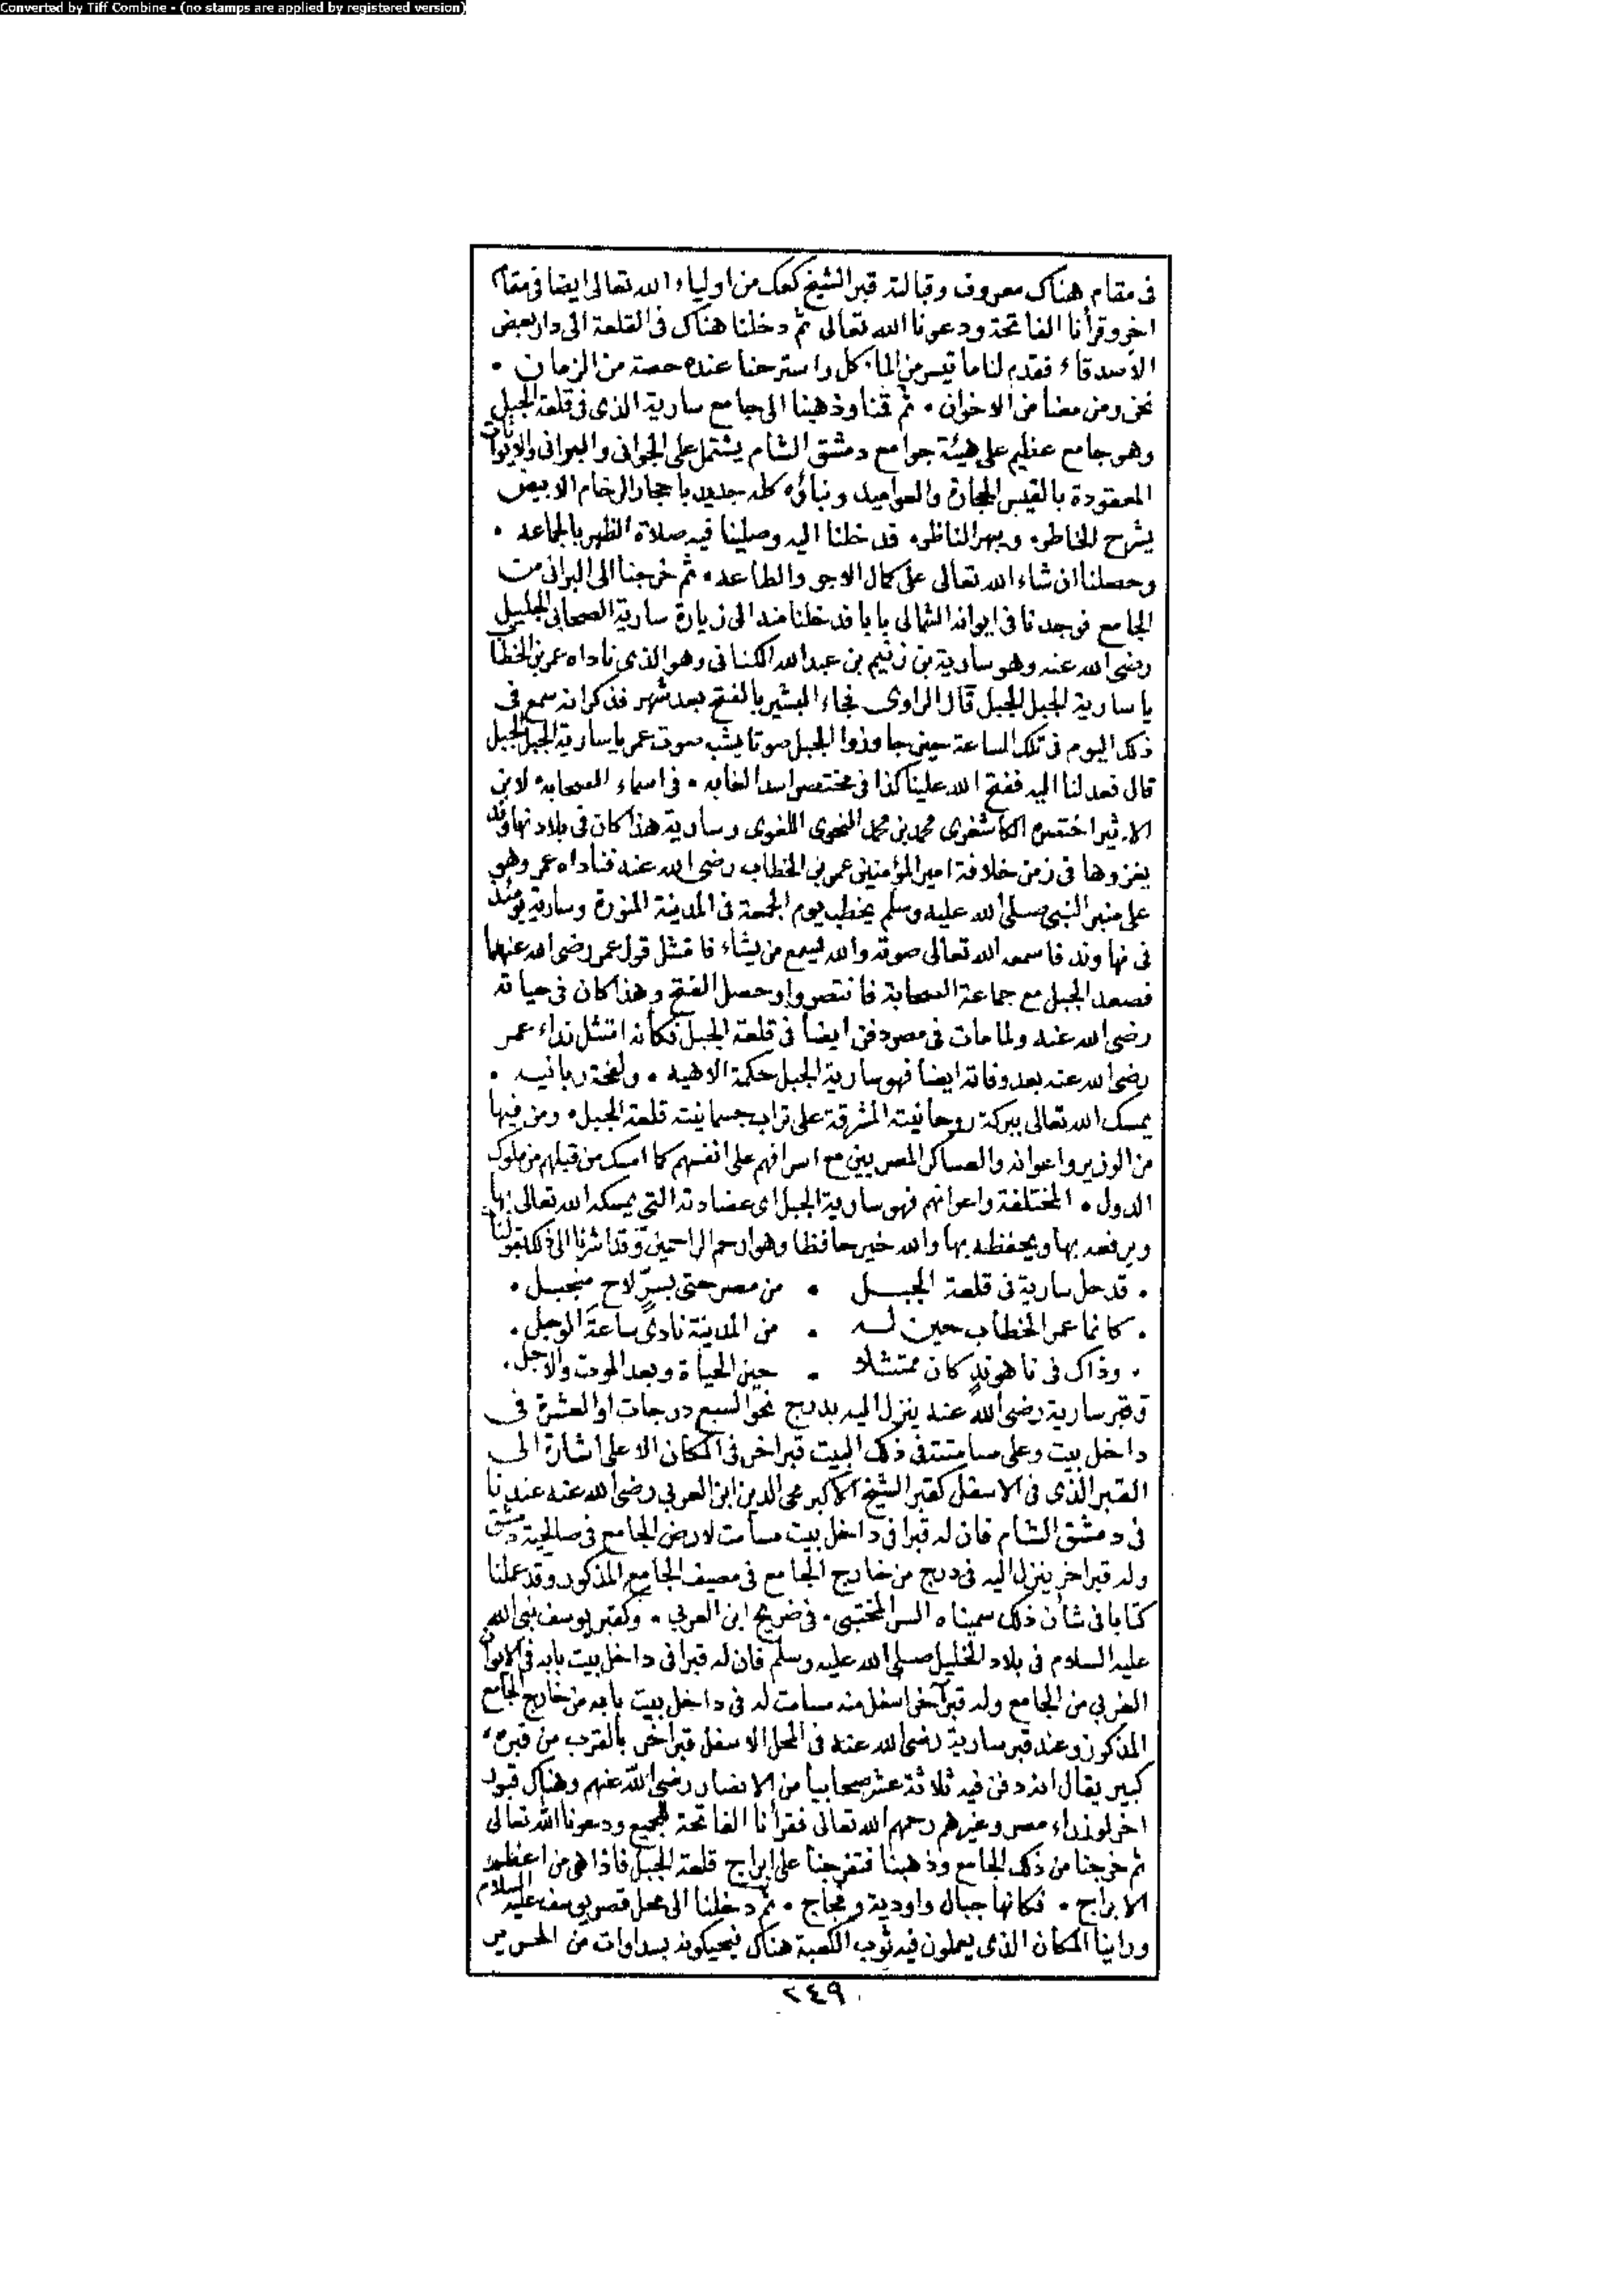 Converted by Tiff Combine - (no stamps are applied by registered version)
فى مقام هناك معروف وقبالته قبر الشيخ كعك من اولياء الله تعالى ايضا فى مقام
اخر وقرأنا الفاتحة ودعونا الله تعالى ثم دخلنا هناك فى القلعة الى دار بعض
الاصدقاء فقدم لنا ما تيسر من المآكل واسترحنا عنده حصة من الزمان .
نحن ومن معنا من الاخوان . ثم قمنا وذهبنا الى جامع سارية الذى فى قلعة الجبل
وهو جامع عظيم على هيئة جوامع دمشق الشام يشتمل على الجوانى والبرانى والايوانات
المعقودة بالقبس الحجارة والعواميد وبناؤه كله جديد باحجار الرخام الابيض
يشرح الخاطر . ويبهر الناظر . فدخلنا اليه وصلينا فيه صلاة الظهر بالجماعه .
وحصلنا ان شاء الله تعالى على كمال الاجر والطاعه . ثم خرجنا الى البرانى من
الجامع فوجدنا فى ايوانه الشمالى بابا فدخلنا منه الى زيارة سارية الصحابى الجليل
رضى الله عنه وهو سارية بن زنيم بن عبد الله الكنانى وهو الذى ناداه عمر بن الخطاب
يا سارية الجبل الجبل قال الراوى فجاء المبشير بالفتح بعد شهر فذكر انه سمع فى
ذلك اليوم فى تلك الساعة حين جاوزوا الجبل صوتا يشبه صوت عمر يا سارية الجبل الجبل
قال فعدلنا اليه ففتح الله علينا كذا فى مختصر اسد الغابه . فى اسماء الصحابه لابن
الاثير اختصره الكاشغرى محمد بن محمد النحوى اللغوى وسارية هذا كان فى بلاد نهاوند
يغزوها فى زمن خلافة امير المؤمنين عمر بن الخطاب رضى الله عنه فناداه عمر وهو
على منبر النبى صلى الله عليه وسلم يخطب يوم الجمعة فى المدينة المنورة وسارية يومئذ
فى نهاوند فاسمعه الله تعالى صوته والله يسمع من يشاء فامتثل قول عمر رضى الله عنهما
فصعد الجبل مع جماعة الصحابة فانتصروا وحصل الفتح وهذا كان فى حياته
رضى الله عنه ولما مات فى مصر دفن ايضا فى قلعة الجبل فكأنه امتثل نداء عمر
رضى الله عنه بعد وفاته ايضا فهو سارية الجبل حكمة الاهيه . ونفحة ربانيه .
يمسك الله تعالى ببركة روحانيته المشرقة على تراب جسمانيته قلعة الجبل . ومن فيها
من الوزير واعوانه والعساكر المصريين مع اسرافهم على انفسهم كما امسك من قبلهم من ملوك
الدول . المختلفة واعوانهم فهو سارية الجبل اى عضادته التى يمسكه الله تعالى بها
ويرفعه بها ويحفظه بها والله خير حافظا وهو ارحم الراحمين وقد اشرنا الى ذلك بقولنا
. قد حل سارية فى قلعة الجبل . من مصر حتى بسرّ لاح منجبل .
. كانما عمر الخطاب حين له . من المدينة نادى ساعة الوجل .
. وذاك فى ناهوند كان ممتثلا . حين الحياة وبعد الموت والاجل .
وقبر سارية رضى الله عنه ينزل اليه بدرج نحو السبع درجات او العشرة فى
داخل بيت وعلى مسامتته فى ذلك البيت قبر اخر فى المكان الاعلى اشارة الى
القبر الذى فى الاسفل كقبر الشيخ الاكبر محى الدين ابن العربي رضى الله عنه عندنا
فى دمشق الشام فان له قبرا فى داخل بيت مسامت لارض الجامع فى صالحية دمشق
وله قبر اخر ينزل اليه فى درج من خارج الجامع فى مصيف الجامع المذكور وقد عملنا
كتابا فى شأن ذلك سميناه السر المختبى . فى ضريح ابن العربي . وكقبر يوسف نبى الله
عليه السلام فى بلاد الخليل صلى الله عليه وسلم فان له قبرا فى داخل بيت بابه فى الايوان
الغربي من الجامع وله قبر آخر اسفل منه مسامت له فى داخل بيت بابه من خارج الجامع
المذكور وعند قبر سارية رضى الله عنه فى المحل الاسفل قبر اخر بالقرب من قبره
كبير يقال انه دفن فيه ثلاثة عشر صحابيا من الانصار رضى الله عنهم وهناك قبور
اخر لوزراء مصر وغيرهم رحمهم الله تعالى فقرأنا الفاتحة للجميع ودعونا الله تعالى
ثم خرجنا من ذلك الجامع وذهبنا فتفرجنا على ابراج قلعة الجبل فاذا هى من اعظم
الابراج . فكانها جبال واودية وفجاج . ثم دخلنا الى محل قصر يوسف عليه السلام
وراينا المكان الذى يعملون فيه ثوب الكعبة هناك فيحيكونه بسداوات من الحرير
٢٤٩